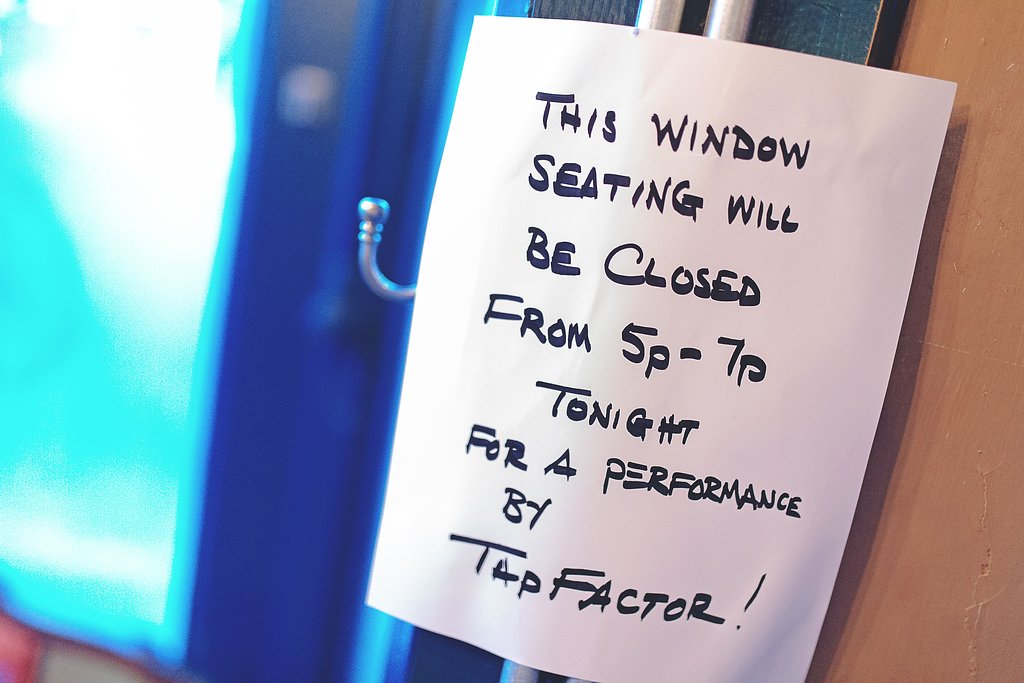 THIS WINDOW
SEATING WILL
BE CLOSED
FROM 5p-7p
TONIGHT
FOR A PERFORMANCE
BY
TAP FACTOR!